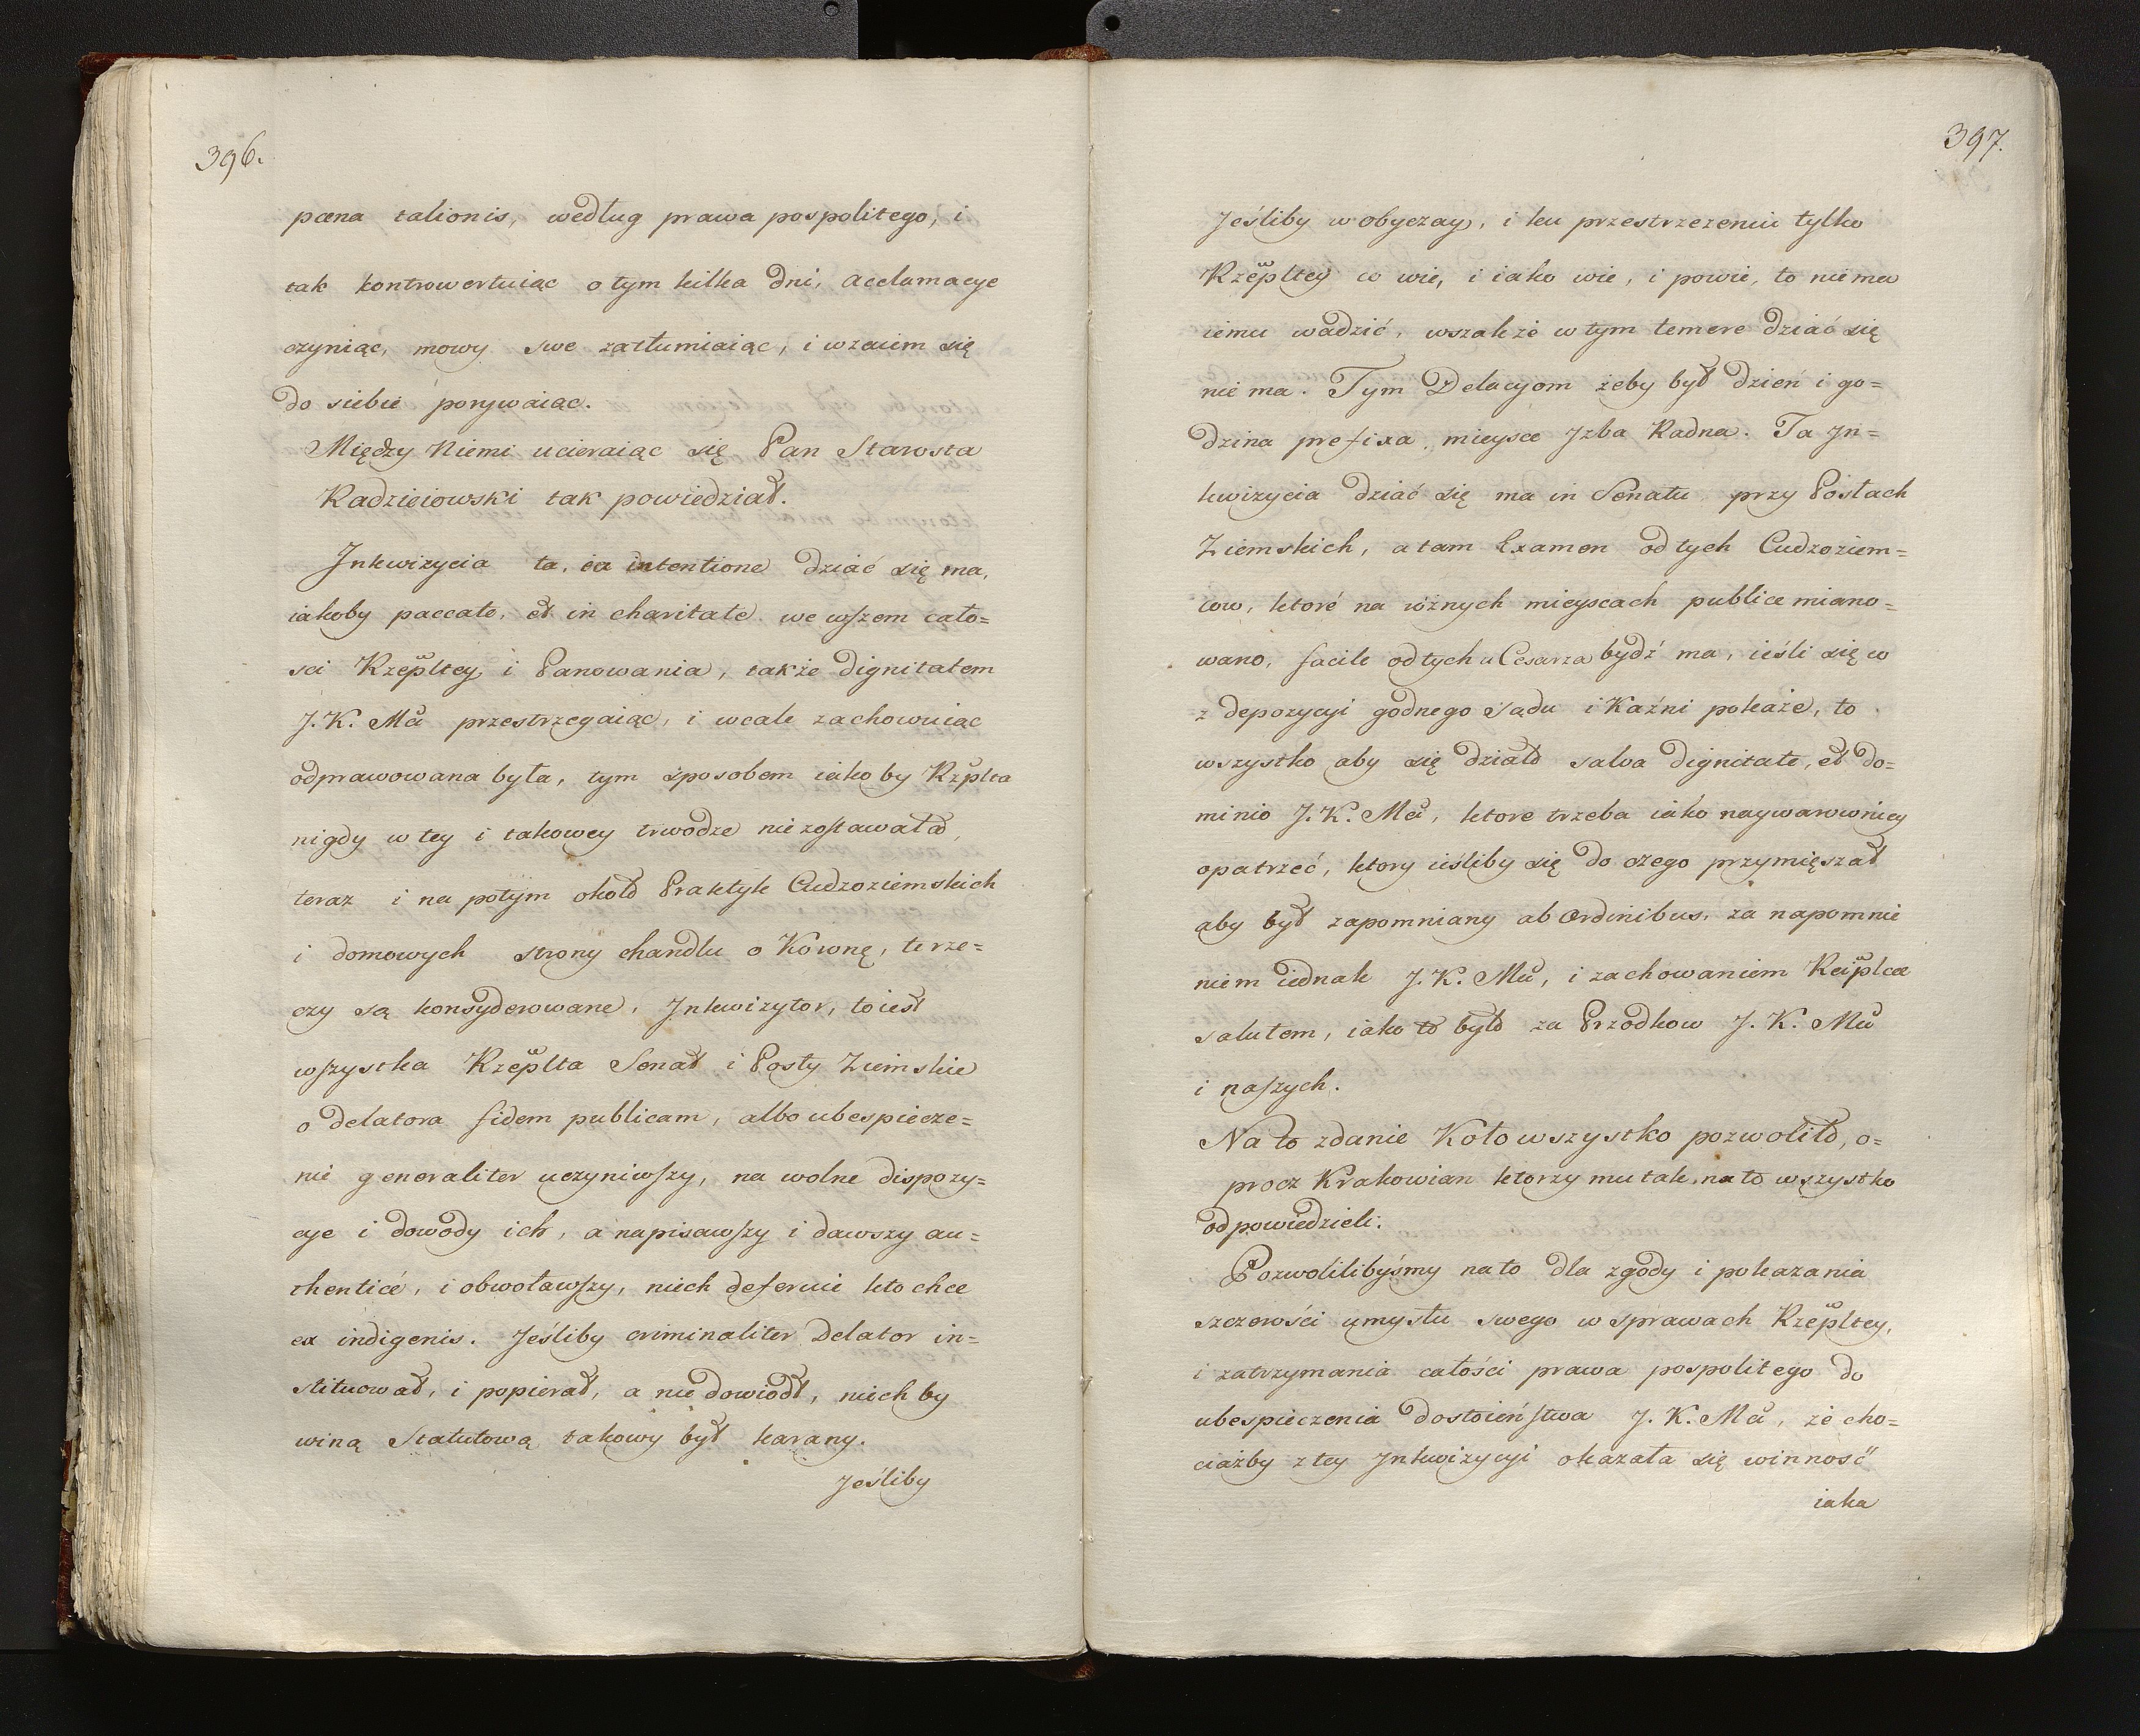 396.
pœna talionis, według prawa pospolitego, i
tak kontrowertuiąc o tym kilka dni, acclamacye
czyniąc, mowy swe zatłumiaiąc, i wzaiem się
do siebie porywaiąc.
Między Niemi ucieraiąc się Pan Starosta
Radzieiowski tak powiedział.
Inkwizycia ta, ea intentione dziać się ma,
iakoby paccate, et in charitate we wszem cało=
sci Rzepltey i Panowania, także dignitatem
J. K. Mci przestrzegaiąc, i wcale zachowuiąc
odprawowana była, tym sposobem iakoby Rzplta
nigdy w tey i takowey trwodze nie zostawała,
teraz i na potym około Praktyk Cudzoziemskich
i domowych strony chandlu o Koronę, te rze=
czy są konsyderowane. Inkwizytor, to iest
wszystka Rzeplta Senat i Posły Ziemskie
o delatora fidem publicam, albo ubespiecze=
nie generaliter uczyniwszy, na wolne dispozy=
cye i dowody ich, a napisawszy i dawszy au=
thenticé, i obwoławszy, niech deferuie kto chce
ex indigenis. Jeśliby criminaliter Delator in=
stituował, i popierał, a nie dowiodł, niech by
winą Statutową takowy był karany.
Jeśliby
397.
Jeśliby w obyczay, i ku przestrzezeniu tylko
Rzepltey co wie, i iako wie, i powie, to nie ma
iemu wadzić, wszakże w tym temere dziać się
nie ma. Tym Delacyom żeby był dzień i go=
dzina prefixa, mieysce Izba Radna. Ta In=
kwizycia dziać się ma in Senatu przy Posłach
Ziemskich, a tam Examen od tych Cudzoziem=
cow, ktoré na rożnych mieyscach publice miano=
wano, facile od tych u Cesarza bydź ma, ieśli się w
z depozycyi godnego sądu i Kaźni pokaże, to
wszystko aby się działo salva dignitate, et do=
minio J. K. Mci, ktore trzeba iako naywarowniey
opatrzeć, ktory ieśliby się do czego przymięszał
aby był zapomniany ab Ordinibus, za napomnie
niem iednak J. K. Mci, i zachowaniem Reiplcæ
salutem, iako to było za Przodkow J. K. Mci
i naszych.
Na to zdanie Koło wszystko pozwoliło, o=
procz Krakowian ktorzy mu tak na to wszystko
odpowiedzieli.
Pozwolilibyśmy na to dla zgody i pokazania
szczerości umysłu swego w sprawach Rzepltey,
i zatrzymania całości prawa pospolitego do
ubespieczenia dostoieństwa J. K. Mci, że cho=
ciażby z tey Inkwizycyi okazała się winność
iaka